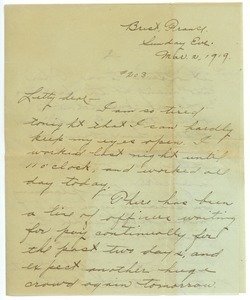 Brest, France,
Sunday Eve.
Mar. 2, 1919.
#203.
Letty dear -
I am so tired
tonight that I can hardly
keep my eyes open. I
worked last night until
11 o'clock, and worked all
day today.
There has been
a line of officers waiting
for pay continually for
the past two days, and
expect another huge
crowd again tomorrow.